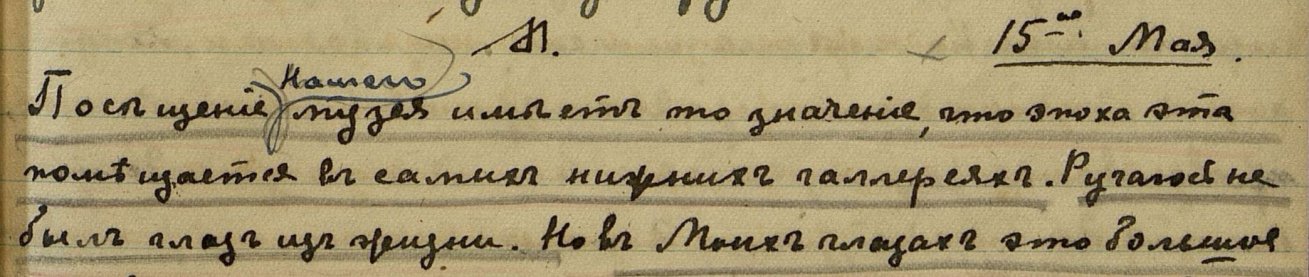 М. 15го Мая.
Нашего
Посѣщеніе музея имѣетъ то значеніе, что эпоха эта
помѣщается въ самихъ нижнихъ галлереяхъ. Ручаюсь не
былъ гладъ изъ жизни. Но въ Моихъ глазахъ это большое